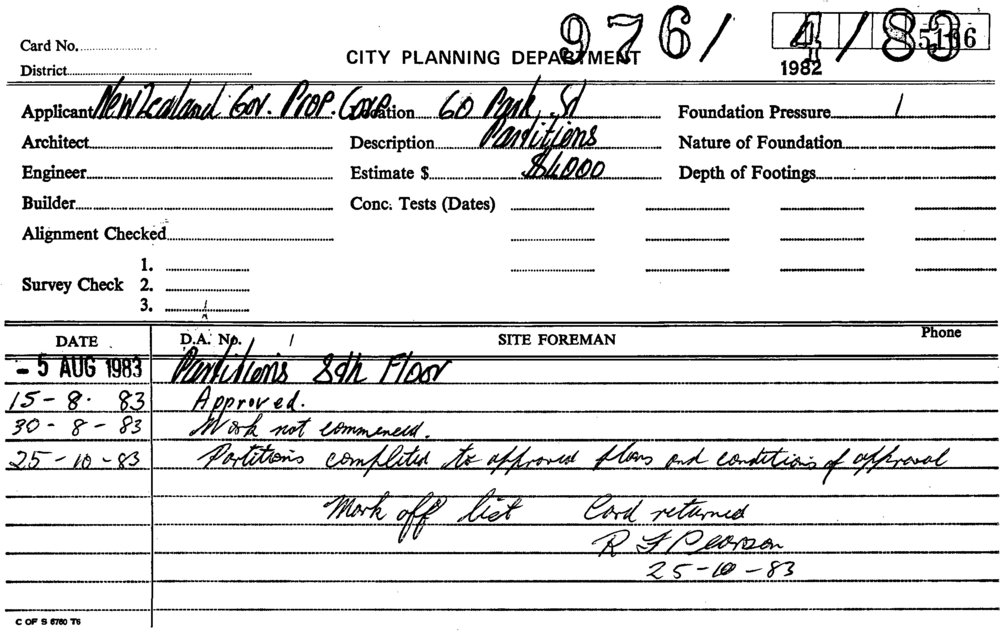 976/ 4/83
5166
1982
Card No.
CITY PLANNING DEPARTMENT
District
Applicant New Zealand Gov. Prop. Corp Location 60 Park St Foundation Pressure
Architect Description Partitions Nature of Foundation
Engineer Estimate $ $4000 Depth of Footings
Builder Conc. Tests (Dates)
Alignment Checked
1.
Survey Check 2.
3.
DATE D.A. No. SITE FOREMAN Phone
- 5 AUG 1983 Partitions 8th Floor
15-8-83 Approved.
30-8-83 Work not commenced.
25-10-83 Partitions completed to approved plans and conditions of approval
Mark off list Card returned
R F Pearson
25-10-83
C OF S 6760 T6